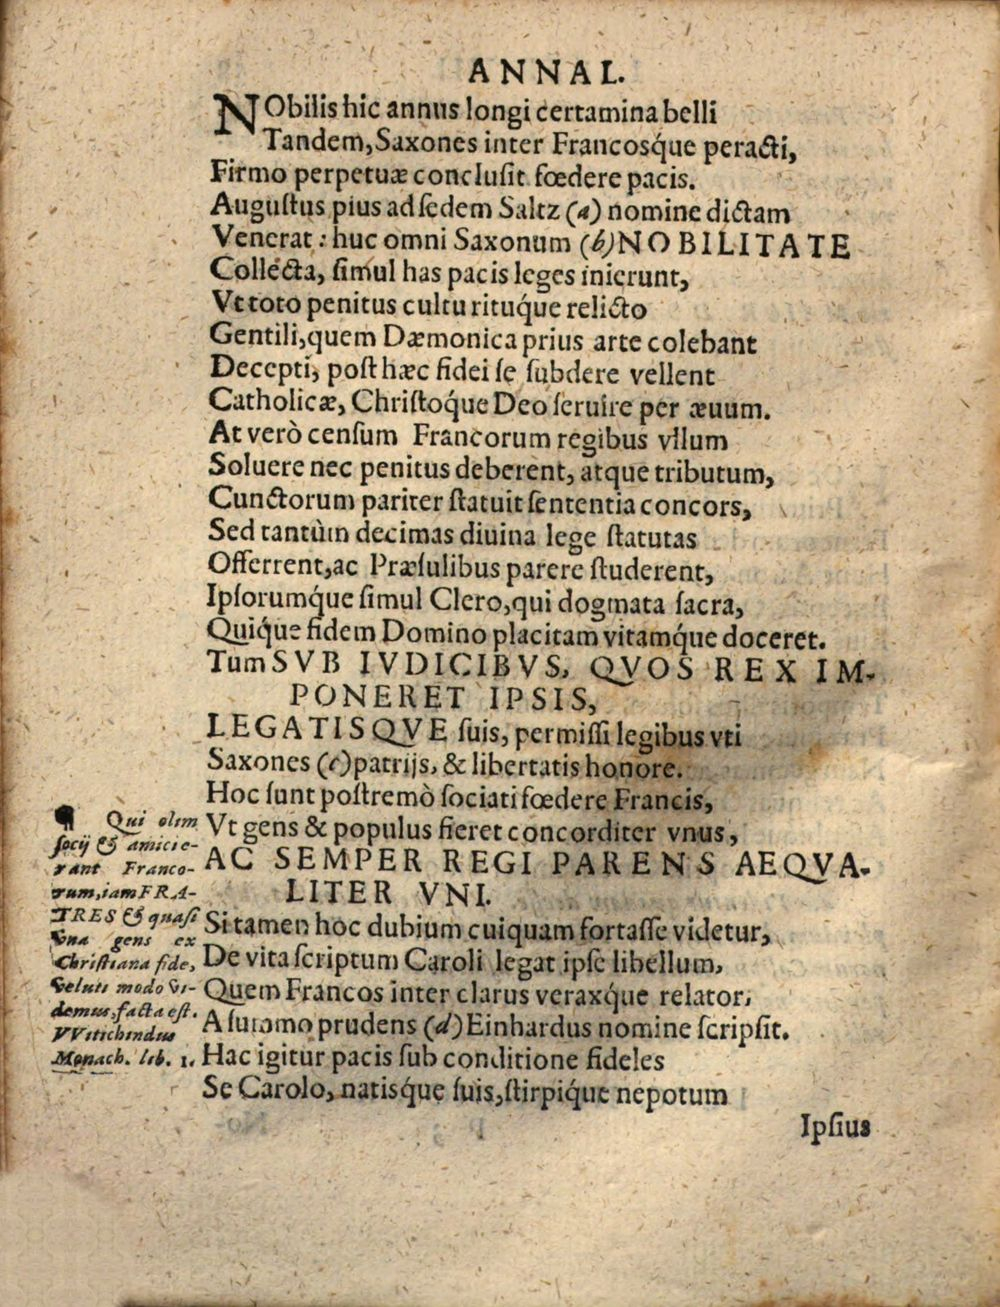 ANNAL.
NObilis hic annus longi certamina belli
Tandem, Saxones inter Francosq́ue peracti,
Firmo perpetuæ conclusit fœdere pacis.
Augustus pius ad sedem Saltz (a) nomine dictam
Venerat: huc omni Saxonum (b) NOBILITATE
Collecta, simul has pacis leges inierunt,
Vt toto penitus cultu rituq́ue relicto
Gentili, quem Dæmonica prius arte colebant
Decepti, post hæc fidei se subdere vellent
Catholicæ, Christoq́ue Deo seruire per æuum.
At verò censum Francorum regibus vllum
Soluere nec penitus deberent, atque tributum,
Cunctorum pariter statuit sententia concors,
Sed tantùm decimas diuina lege statutas
Offerrent, ac Præsulibus parere studerent,
Ipsorumq́ue simul Clero, qui dogmata sacra,
Quiq́ue fidem Domino placitam vitamq́ue doceret.
Tum SVB IVDICIBVS, QVOS REX IM-
PONERET IPSIS,
LEGATISQVE suis, permissi legibus vti
Saxones (c) patrijs, & libertatis honore.
Hoc sunt postremò sociati fœdere Francis,
Vt gens & populus fieret concorditer vnus,
AC SEMPER REGI PARENS AEQVA-
LITER VNI.
Si tamen hoc dubium cuiquam fortasse videtur,
De vita scriptum Caroli legat ipse libellum,
Quem Francos inter clarus veraxq́ue relator,
A summo prudens (d) Einhardus nomine scripsit.
Hac igitur pacis sub conditione fideles
Se Carolo, natisq́ue suis, stirpiq́ue nepotum
Ipsius
¶ Qui olim
socij & amici e-
rant Franco-
rum, iam FRA-
TRES & quasi
vna gens ex
Christiana fide,
veluti modo vi-
demus, facta est.
VVitichindus
Monach. lib. 1.